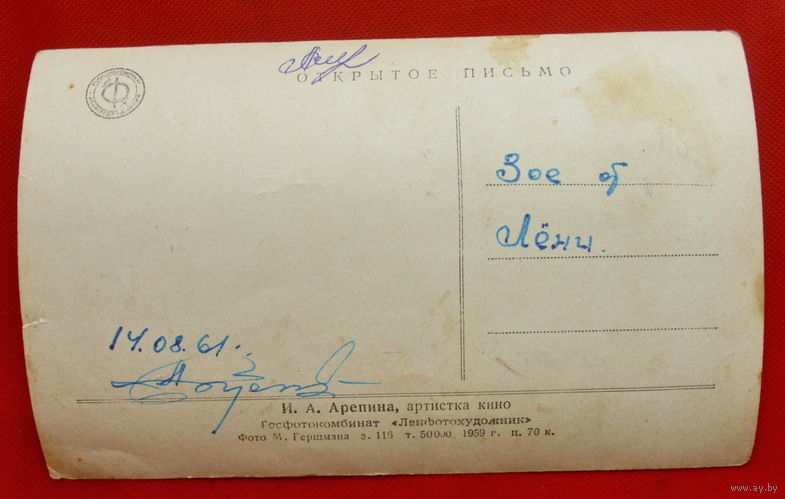 ОТКРЫТОЕ ПИСЬМО
Ф
Зое от
Лёни.
14.08.61.
И. А. Арепина, артистка кино
Госфотокомбинат «Ленфотохудожник»
Фото М. Гершмана з. 116 т. 50000 1959 г. ц. 70 к.
www.ay.by